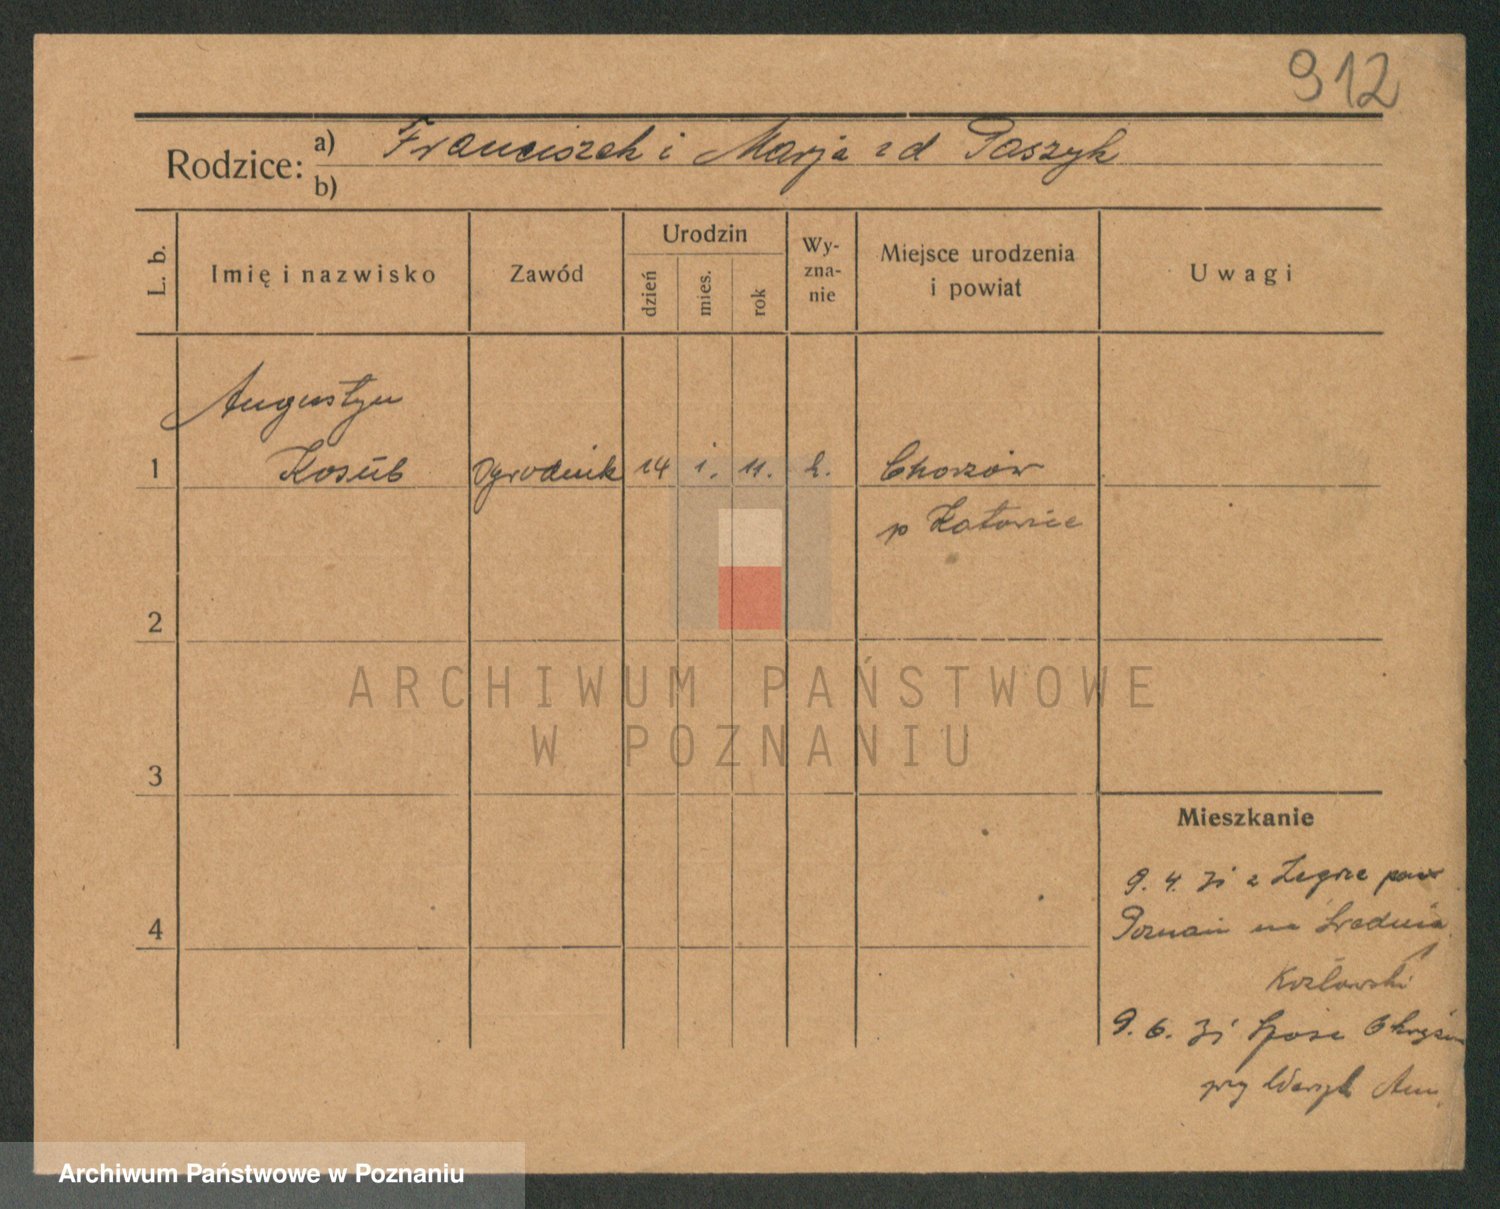 912
Rodzice: a) Franciszek i Marja zd Paszyk
b)
L. b.
Imię i nazwisko
Zawód
Urodzin
dzień
mies.
rok
Wy-
zna-
nie
Miejsce urodzenia
i powiat
Uwagi
Augustyn
1 Kosub Ogrodnik 14 1. 11. k. Chorzów
p Katowice
2
ARCHIWUM PAŃSTWOWE
W POZNANIU
3
Mieszkanie
9. 4. 31 z Żegrze pow
Poznań na Średnia
4
Kozłowski
9. 6. 31
przy
Archiwum Państwowe w Poznaniu